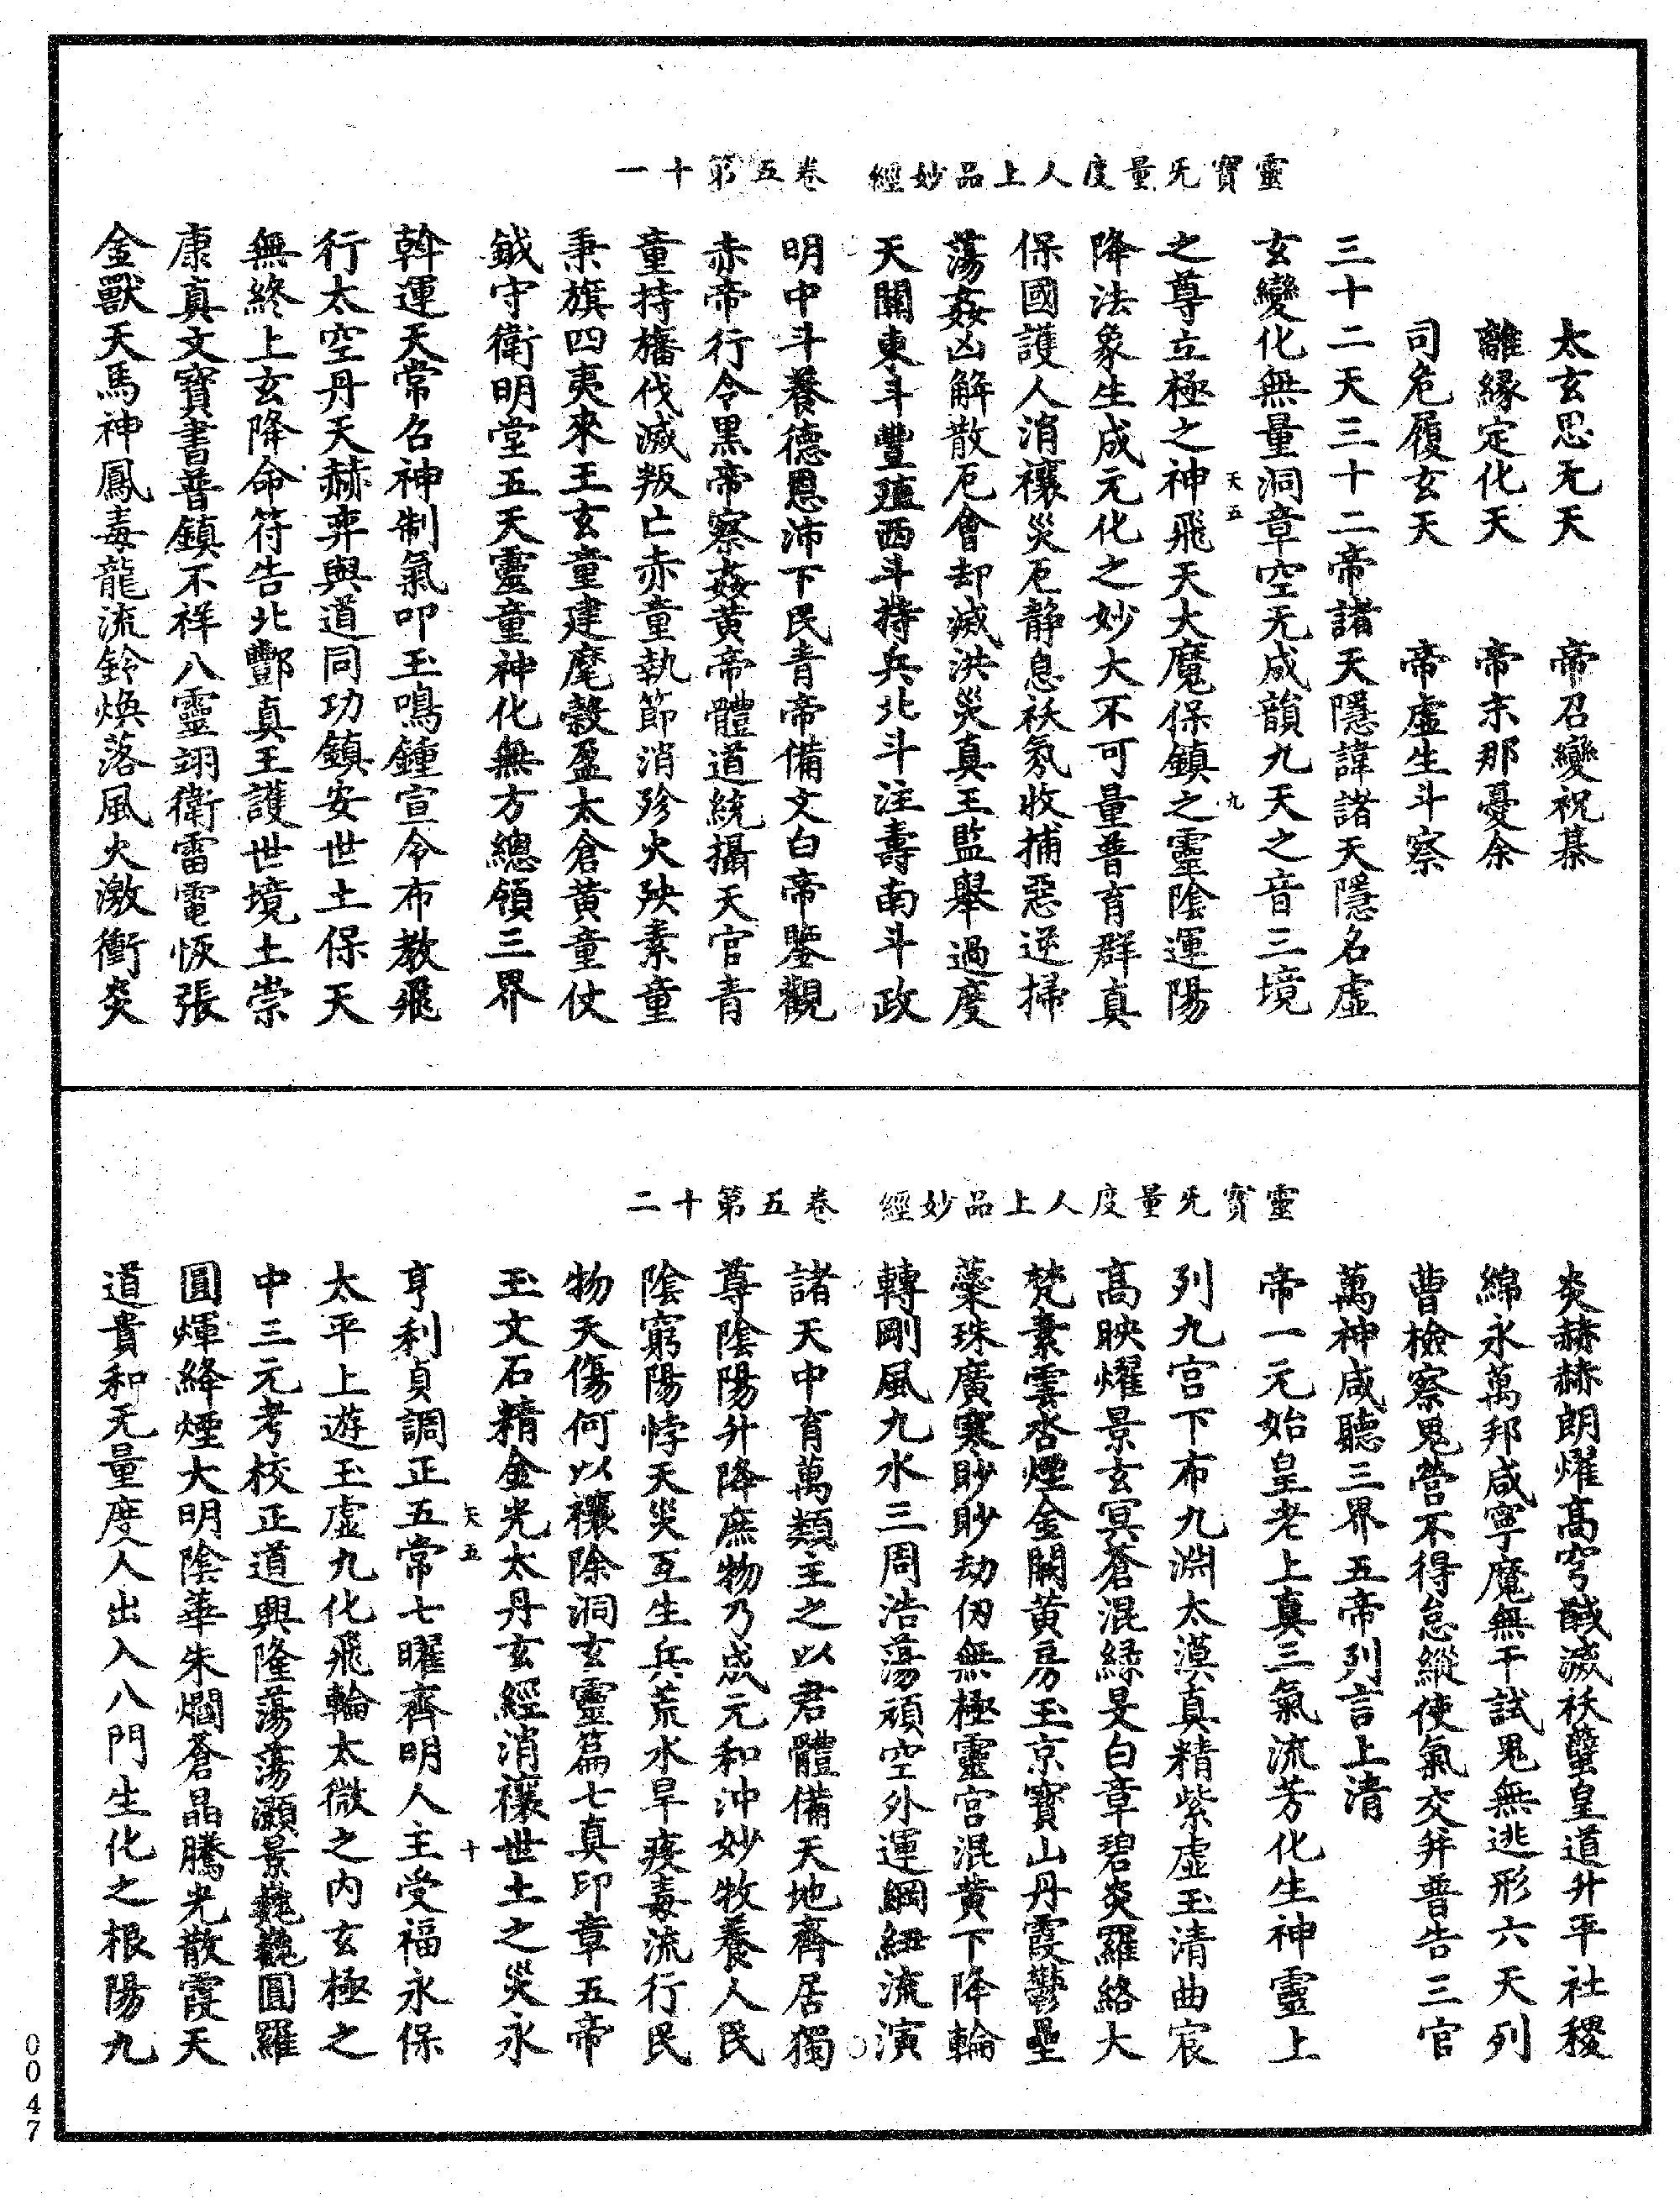 靈寶无量度人上品妙經　卷五第十一
太玄思无天　帝召變祝棊
離緣定化天　帝末那憂余
司危履玄天　帝虛生斗察
三十二天三十二帝諸天隱諱諸天隱名虛
玄變化無量洞章空无成韻九天之音三境
天五　九
之尊立極之神飛天大魔保鎮之靈陰運陽
降法象生成元化之妙大不可量普育群真
保國護人消禳災厄静息祅氛收捕惡逆掃
蕩姦凶解散厄會却滅洪災真王監舉過度
天關東斗豐殖西斗持兵北斗注壽南斗政
明中斗養德恩沛下民青帝備文白帝鑒觀
赤帝行令黑帝察姦黄帝體道統攝天官青
童持旛伐滅叛亡赤童執節消殄火殃素童
秉旗四夷來王玄童建麾穀盈太倉黄童仗
鉞守衛明堂五天靈童神化無方總領三界
斡運天常名神制氣叩玉鳴鍾宣令布教飛
行太空丹天赫弈與道同功鎮安世土保天
無終上玄降命符告北酆真王護世境土崇
康真文寶書普鎮不祥八靈翊衛雷電恢張
金獸天馬神鳳毒龍流鈴煥落風火激衝炎
靈寶无量度人上品妙經　卷五第十二
炎赫赫朗燿高穹馘滅祅蠥皇道升平社稷
綿永萬邦咸寧魔無干試鬼無逃形六天列
曹檢察鬼營不得怠縱使氣交并普告三官
萬神咸聽三界五帝列言上清
帝一元始皇老上真三氣流芳化生神靈上
列九宫下布九淵太漠真精紫虛玉清曲宸
高映燿景玄冥蒼混緑旻白章碧炎羅絡大
梵素雲沓煙金闕黄房玉京寶山丹霞鬱壘
蘂珠廣寒眇眇劫仞無極靈宫混黄下降輪
轉剛風九水三周浩蕩頑空外運綱紐流演
諸天中育萬類主之以君體備天地齊居獨
尊陰陽升降庶物乃成元和沖妙牧養人民
陰窮陽悖天災互生兵荒水旱疫毒流行民
物夭傷何以禳除洞玄靈篇七真印章五帝
玉文石精金光太丹玄經消禳世土之災永
天五　十
亨利貞調正五常七曜齊明人主受福永保
太平上遊玉虛九化飛輪太微之内玄極之
中三元考校正道興隆蕩蕩灝景巍巍圓羅
圓煇絳煙大明陰華朱爓蒼晶騰光散霞天
道貴和无量度人出入八門生化之根陽九
0047